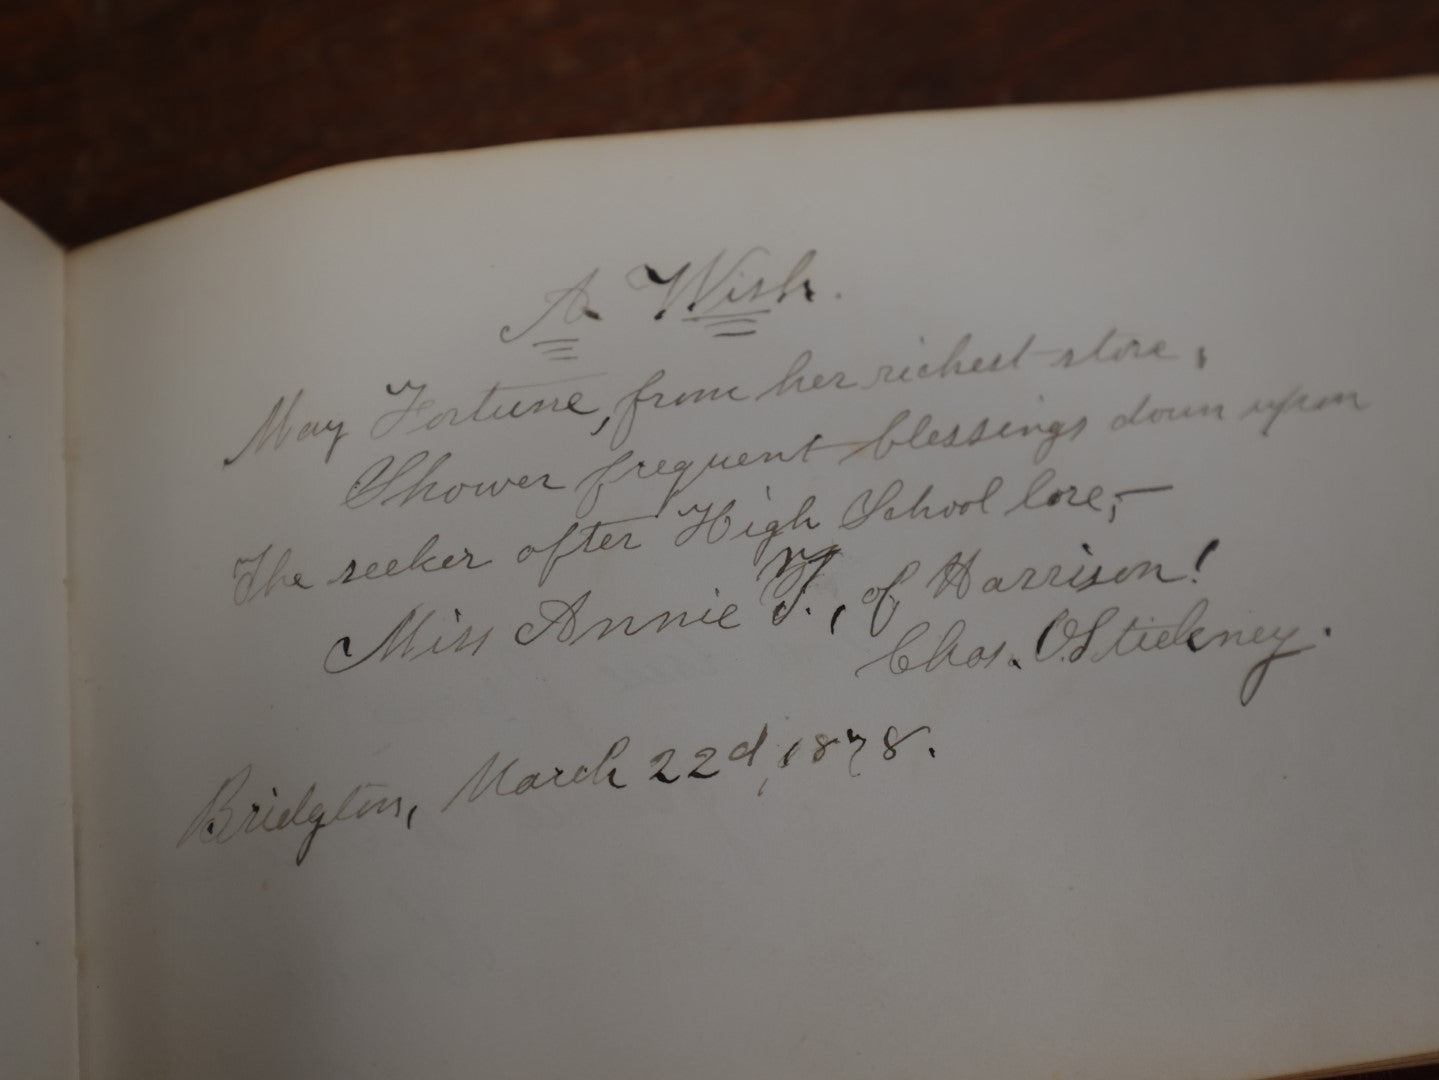 A Wish.
May Fortune, from her richest store,
Shower frequent blessings down upon
The seeker after High School lore,—
Miss Annie F., of Harrison!
Chas. O. Stickney.
Bridgton, March 22d, 1878.